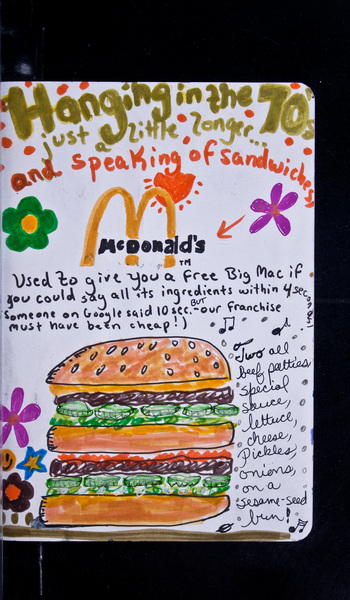 Hanging in the 70s
just a little longer...
and speaking of sandwiches,
McDonald's
TM
Used to give you a free Big Mac if
you could say all its ingredients within 4 seconds!
(Someone on Google said 10 sec. BUT our franchise
must have been cheap!)
Two all
beef patties
special
sauce,
lettuce,
cheese,
Pickles,
onions,
on a
sesame-seed
bun!